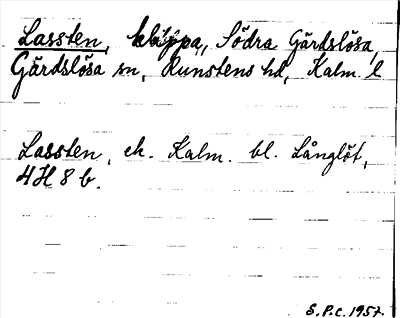 Lassten, klippa, Södra Gärdslösa,
Gärdslösa sn, Runstens hd, Kalm. l
Lassten, ek. Kalm. bl. Långlöt,
4H 8 b.
S.P.C. 1957.